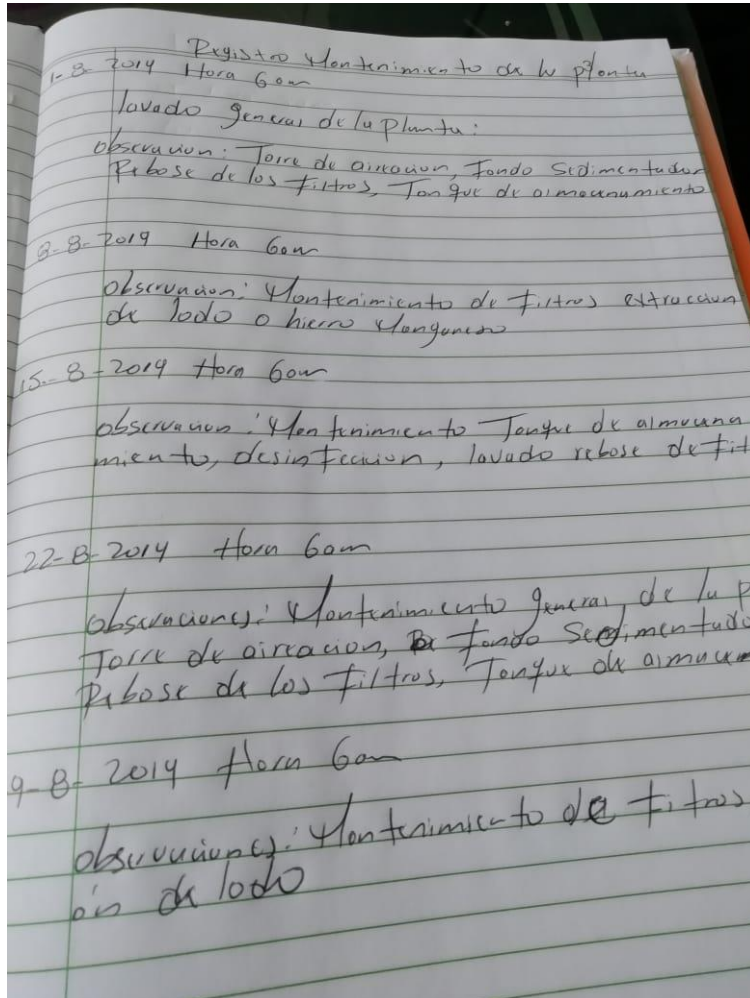 Registro Mantenimiento de la planta
1-8-2019 Hora 6am
lavado general de la planta:
observacion: Torre de aireacion, Fondo Sedimentador
Rebose de los Filtros, Tanque de almacenamiento
8-8-2019 Hora 6am
observacion: Mantenimiento de Filtros extraccion
de lodo o hierro Manganeso
15-8-2019 Hora 6am
observacion: Mantenimiento Tanque de almacena
miento, desinfeccion, lavado rebose de Filt
22-8-2019 Hora 6am
observaciones: Mantenimiento general de la p
Torre de aireacion, Fondo Sedimentado
Rebose de los Filtros, Tanque de almacen
9-8-2019 Hora 6am
observaciones: Mantenimiento de Fitros
ón de lodo